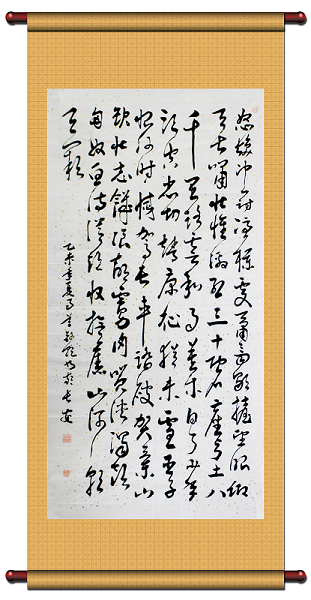 怒髮冲冠憑欄處瀟瀟雨歇擡望眼仰
天長嘯壯懷激烈三十功名塵與土八
千里路雲和月莫等閒白了少年
頭空悲切靖康恥猶未雪臣子
恨何時滅駕長車踏破賀蘭山
缺壯志飢餐胡虜肉笑談渴飲
匈奴血待從頭收拾舊山河朝
天闕
乙未年夏月 於長安